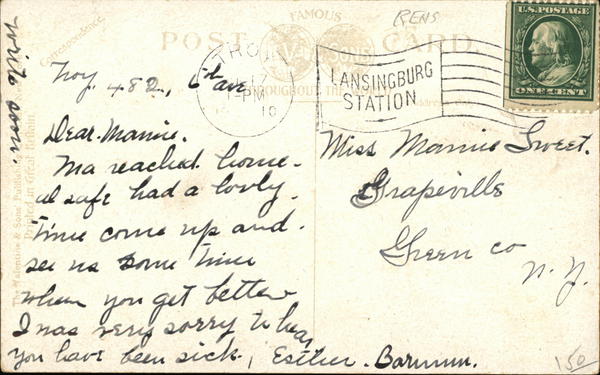 RENS
FAMOUS
POST CARD.
VALENTINE & SONS
THROUGHOUT THE
U.S. POSTAGE
ONE CENT
TROY
17
PM
10
LANSINGBURG
STATION
Correspondence.
Write soon.
Troy. 482, 5th ave
Dear Mamie.
Ma reached home
al safe had a lovly
time come up and
see us some time
when you get better
I was very sorry to hear
you have been sick, Esther. Barnum.
Miss Mamie Sweet.
Grapeville
Green co
N. Y.
The Valentine & Sons' Publish
Printed in Great Britain.
150